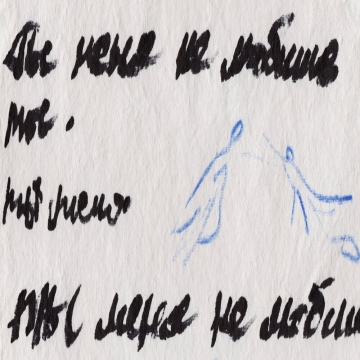 Ты меня не любишь
мые.
ты меня
Ты меня не любиш